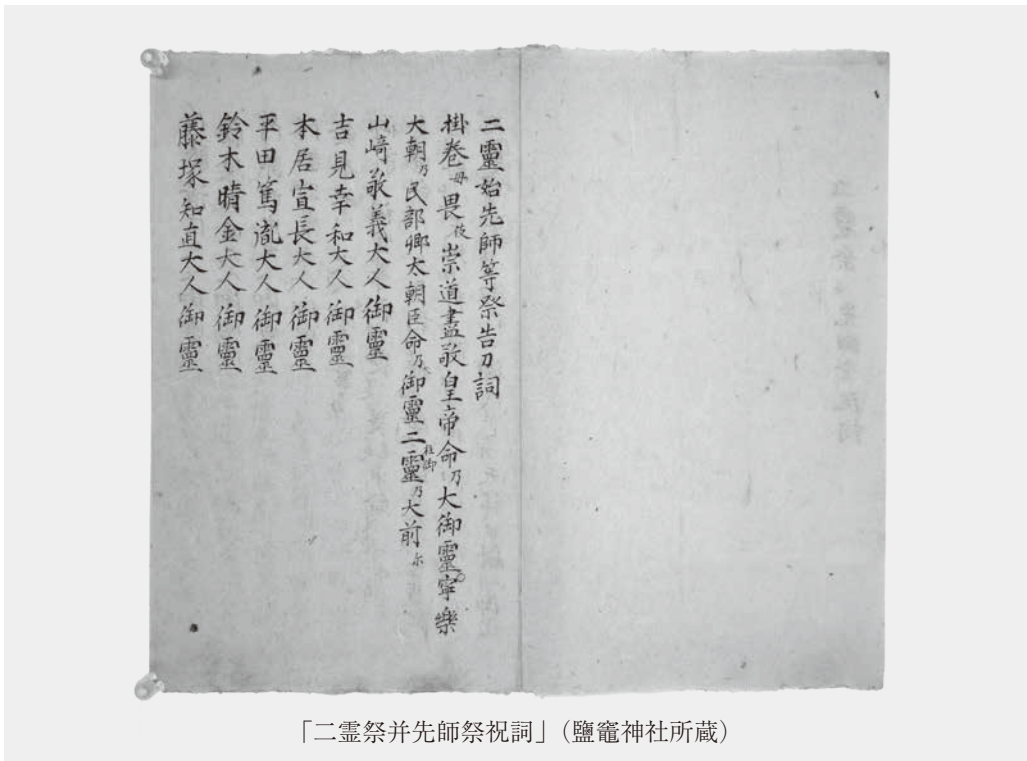 二靈始先師等祭告刀詞
掛卷毋畏伎崇道盡敬皇帝命乃大御靈寧樂
大朝乃民部卿太朝臣命乃御靈二柱御靈乃大前尓
山﨑敬義大人御靈
吉見幸和大人御靈
本居宣長大人御靈
平田篤胤大人御靈
鈴木晴金大人御靈
藤塚知直大人御靈
「二霊祭并先師祭祝詞」(鹽竈神社所蔵)